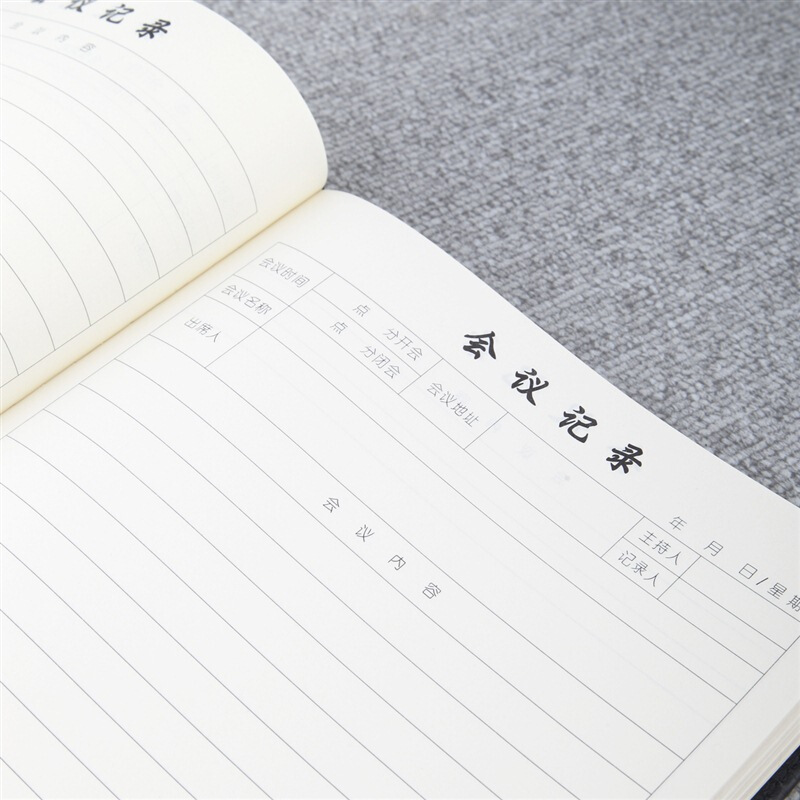 议记录
会议内容
会议记录
年 月 日/星期
会议时间 点 分开会 会议地址 主持人
点 分闭会
会议名称 记录人
出席人
会议内容